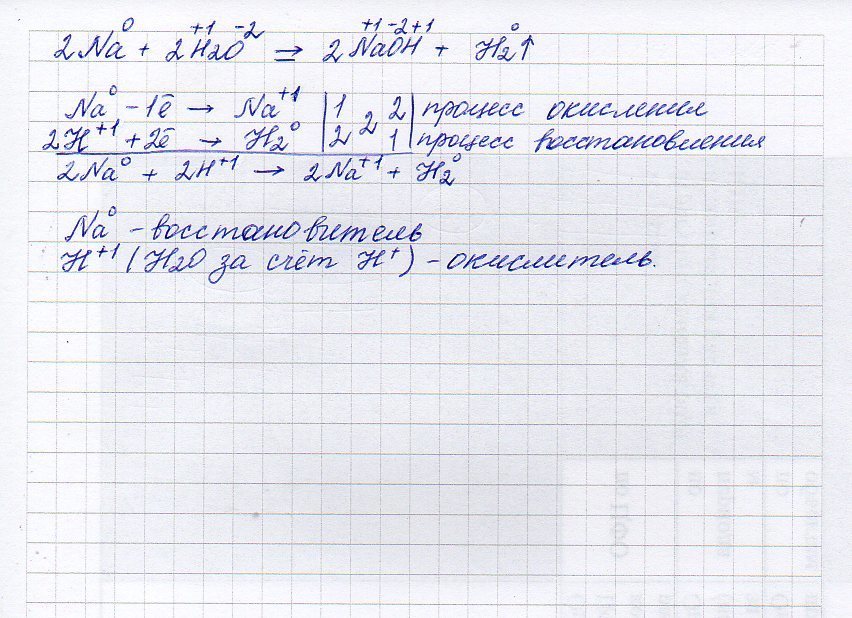 2Na⁰ + 2H₂⁺¹O⁻² = 2Na⁺¹O⁻²H⁺¹ + H₂⁰↑
Na⁰ - 1ē → Na⁺¹ | 1 2 2 | процесс окисления
2H⁺¹ + 2ē → H₂⁰ | 2 1 | процесс восстановления
2Na⁰ + 2H⁺¹ → 2Na⁺¹ + H₂⁰
Na⁰ - восстановитель
H⁺¹ (H₂O за счёт H⁺) - окислитель.